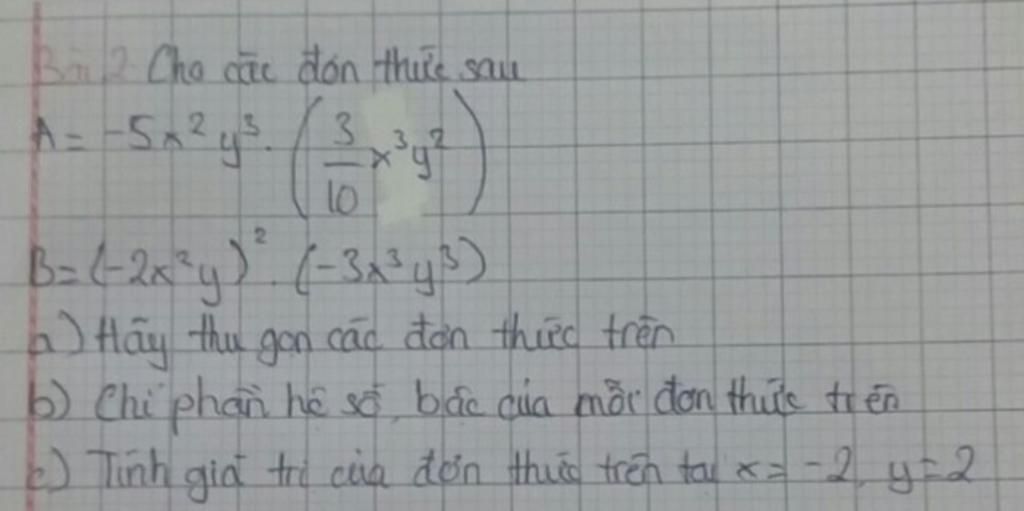 Bài 2 Cho các đơn thức sau
A = -5x² y³. (3/10 x³y²)
B = (-2x²y)². (-3x³y³)
a) Hãy thu gọn các đơn thức trên
b) Chỉ phần hệ số, bậc của mỗi đơn thức trên
c) Tính giá trị của đơn thức trên tại x = -2, y = 2